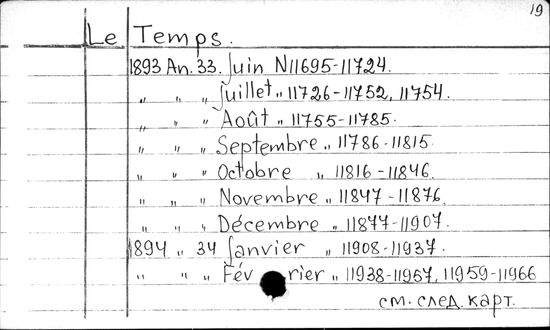 19
Le Temps.
1893 An. 33. Juin N11695-11724.
„ „ „ Juillet „ 11726-11752, 11754.
„ „ „ Août „ 11755-11785.
„ „ „ Septembre „ 11786-11815.
„ „ „ Octobre „ 11816-11846.
„ „ „ Novembre „ 11847-11876.
„ „ „ Décembre „ 11877-11907.
1894 „ 34 Janvier „ 11908-11937.
„ „ „ Février „ 11938-11957, 11959-11966
см. след. карт.